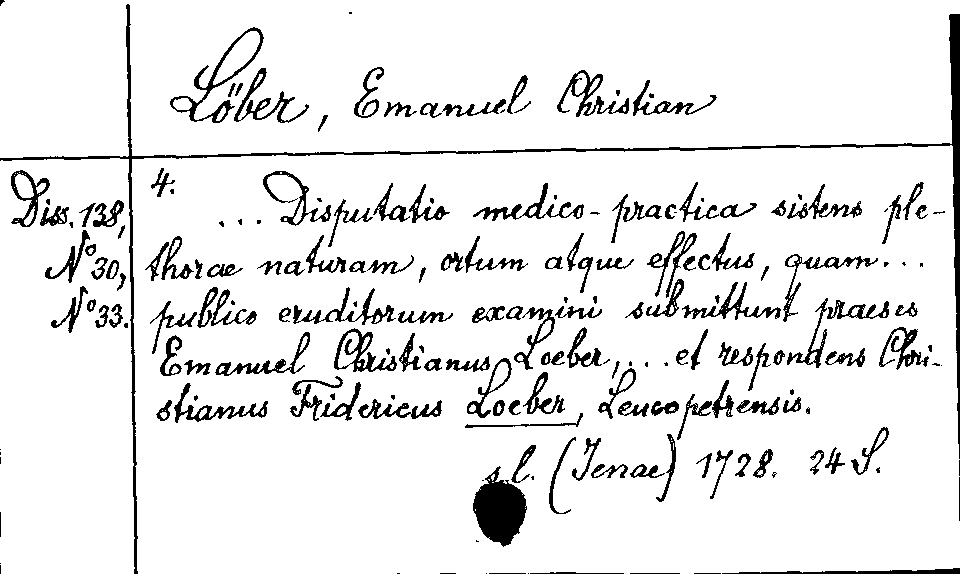 Löber, Emanuel Christian
Diss. 138,
No 30,
No 33.
4.
... Disputatio medico-practica sistens ple-
thorae naturam, ortum atque effectus, quam...
publico eruditorum examini submittunt praeses
Emanuel Christianus Loeber, ... et respondens Chri-
stianus Fridericus Loeber, Leucopetrensis.
s.l. (Jenae) 1728. 24 S.